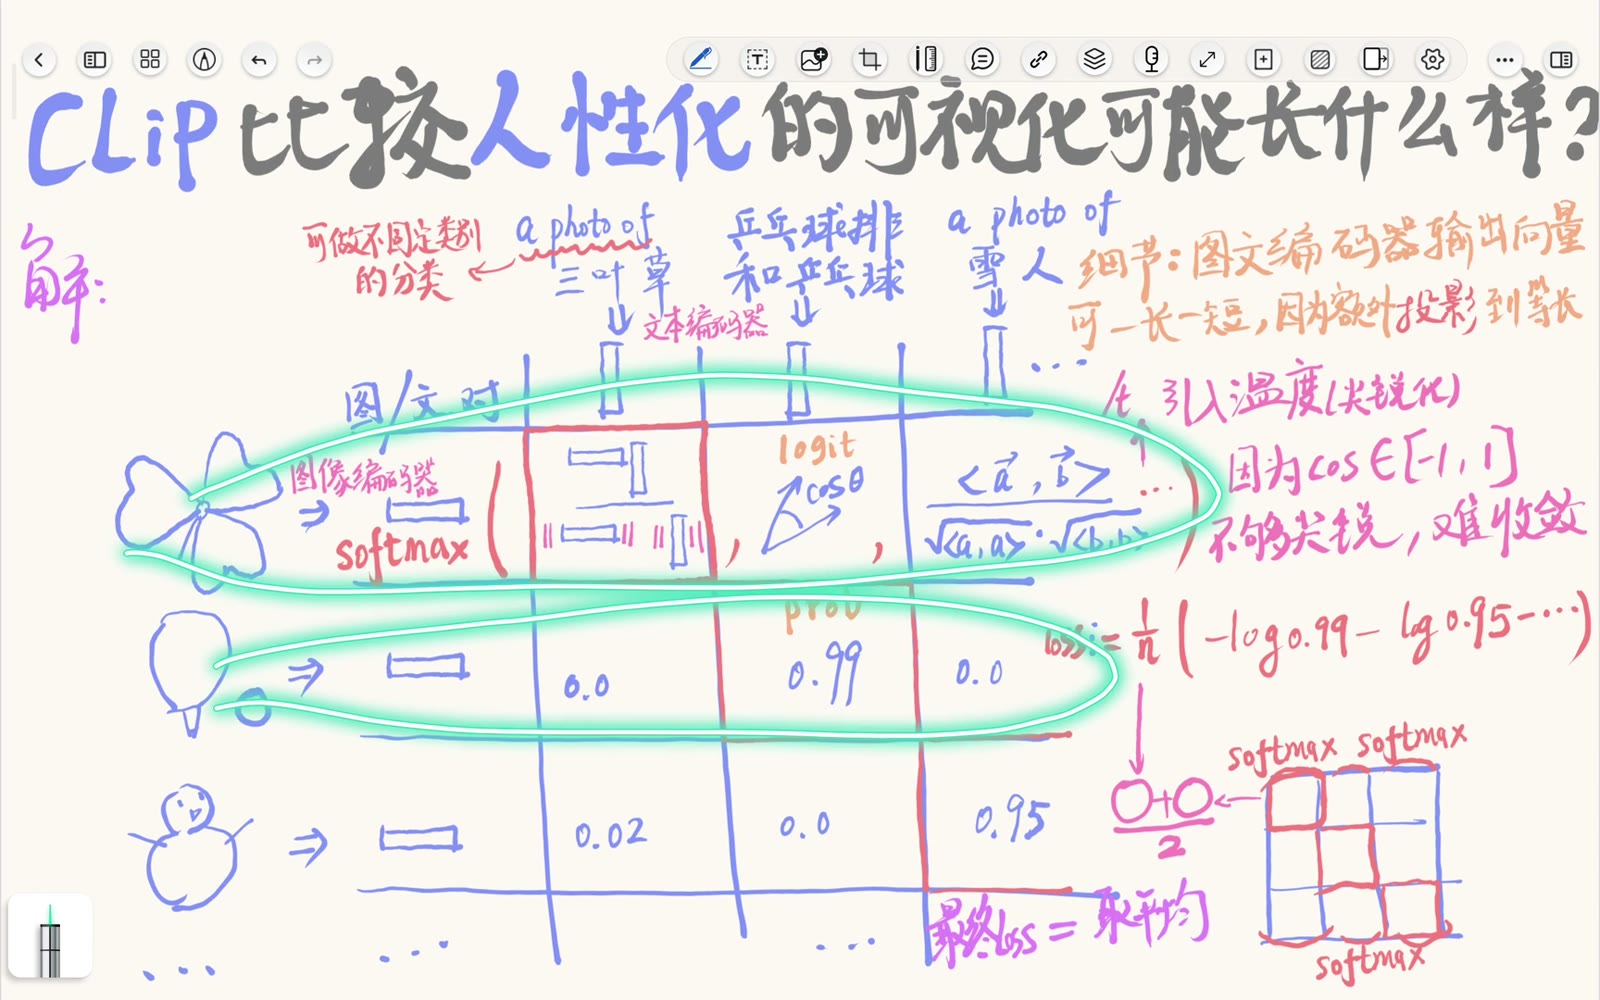 CLiP 比较人性化的可视化可能长什么样?
解:
可做不固定类别
的分类
a photo of
三叶草
乒乓球排
和乒乓球
a photo of
雪人
细节:图文编码器输出向量
可一长一短,因为额外投影到等长
文本编码器
图/文对
...
/t 引入温度(尖锐化)
因为cos∈[-1,1]
不够尖锐,难收敛
图像编码器
⇒
softmax (
|| || || ||
,
logit
cosθ
,
<a⃗, b⃗>
√<a,a>·√<b,b>
... )
prob
⇒
0.0
0.99
0.0
lossi = 1/n (-log0.99 - log0.95 - ...)
⇒
0.02
0.0
0.95
○+○
2
softmax softmax
softmax
最终loss = 取平均
...
...
...